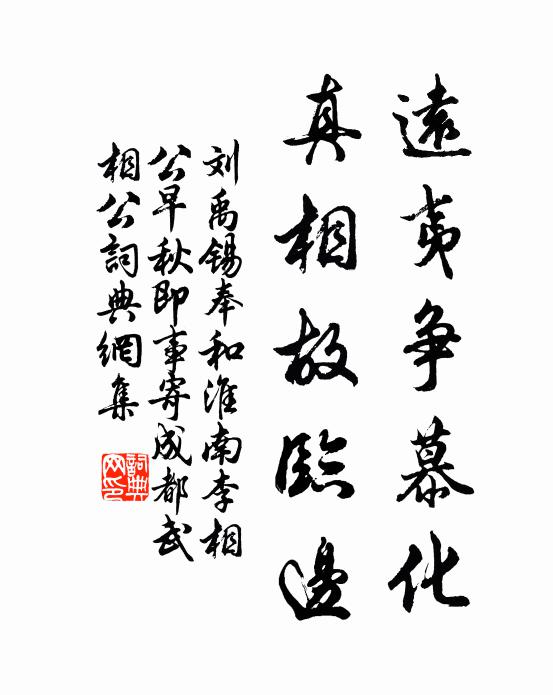 遠夷争慕化
真相故臨邊
刘禹锡奉和淮南李相
公早秋即事寄成都武
相公詞典網集
詞典
网印